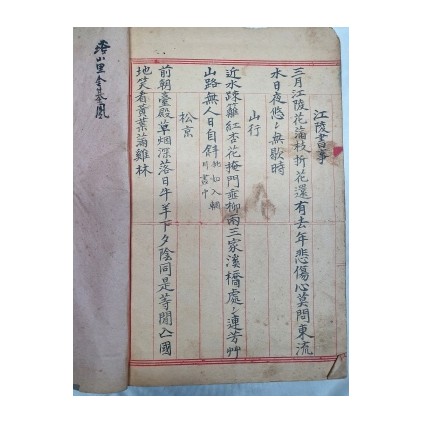 江陵書事
三月江陵花滿枝折花還有去年悲傷心莫問東流
水日夜悠〻無歇時
山行
近水踈籬紅杏花掩門垂柳兩三家溪橋處〻連芳艸
山路無人日自斜 此如入輞
川畫中
松京
前朝臺殿草烟深落日牛羊下夕陰同是等閒亡國
地笑看黃葉滿雞林